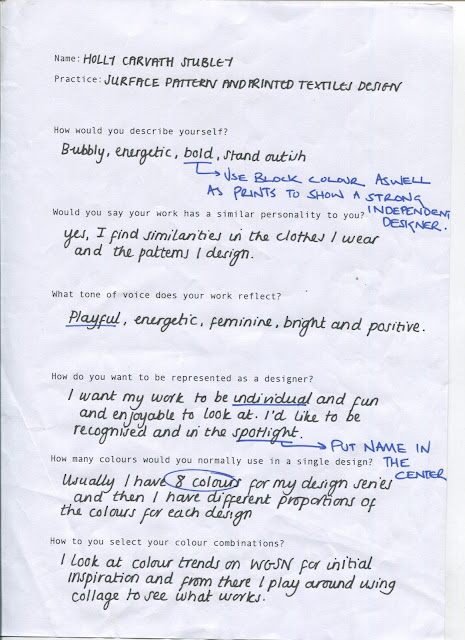 Name: HOLLY CARVATH STUBLEY
Practice: SURFACE PATTERN AND PRINTED TEXTILES DESIGN
How would you describe yourself?
Bubbly, energetic, bold, stand outish
USE BLOCK COLOUR ASWELL
AS PRINTS TO SHOW A STRONG
INDEPENDENT
DESIGNER.
Would you say your work has a similar personality to you?
yes, I find similarities in the clothes I wear
and the patterns I design.
What tone of voice does your work reflect?
Playful, energetic, feminine, bright and positive.
How do you want to be represented as a designer?
I want my work to be individual and fun
and enjoyable to look at. I'd like to be
recognised and in the spotlight.
PUT NAME IN
THE
CENTER
How many colours would you normally use in a single design?
Usually I have 8 colours for my design series
and then I have different proportions of
the colours for each design
How to you select your colour combinations?
I look at colour trends on WGSN for initial
inspiration and from there I play around using
collage to see what works.